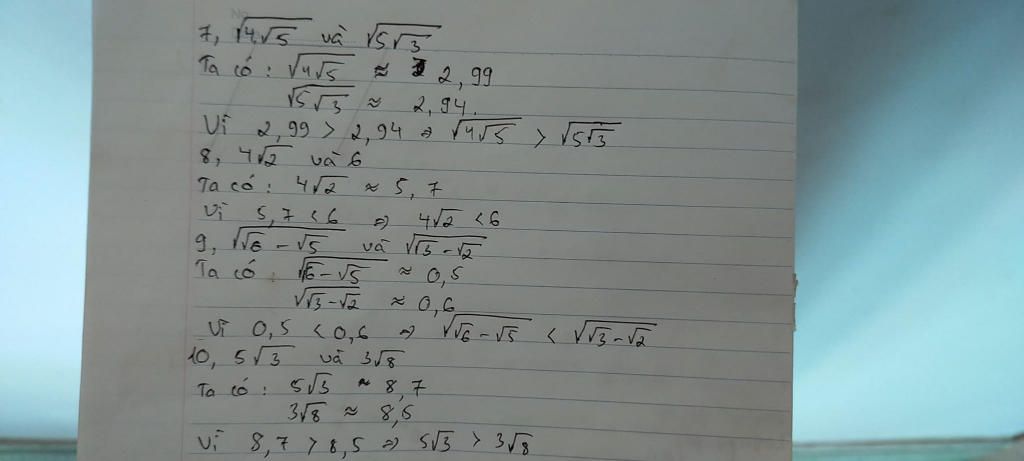 7, √(4√5) và √(5√3)
Ta có : √(4√5) ≈ 2,99
√(5√3) ≈ 2,94.
Vì 2,99 > 2,94 ⇒ √(4√5) > √(5√3)
8, 4√2 và 6
Ta có : 4√2 ≈ 5,7
Vì 5,7 < 6 ⇒ 4√2 < 6
9, √(√6 - √5) và √(√3 - √2)
Ta có : √(√6 - √5) ≈ 0,5
√(√3 - √2) ≈ 0,6
Vì 0,5 < 0,6 ⇒ √(√6 - √5) < √(√3 - √2)
10, 5√3 và 3√8
Ta có : 5√3 ≈ 8,7
3√8 ≈ 8,5
Vì 8,7 > 8,5 ⇒ 5√3 > 3√8